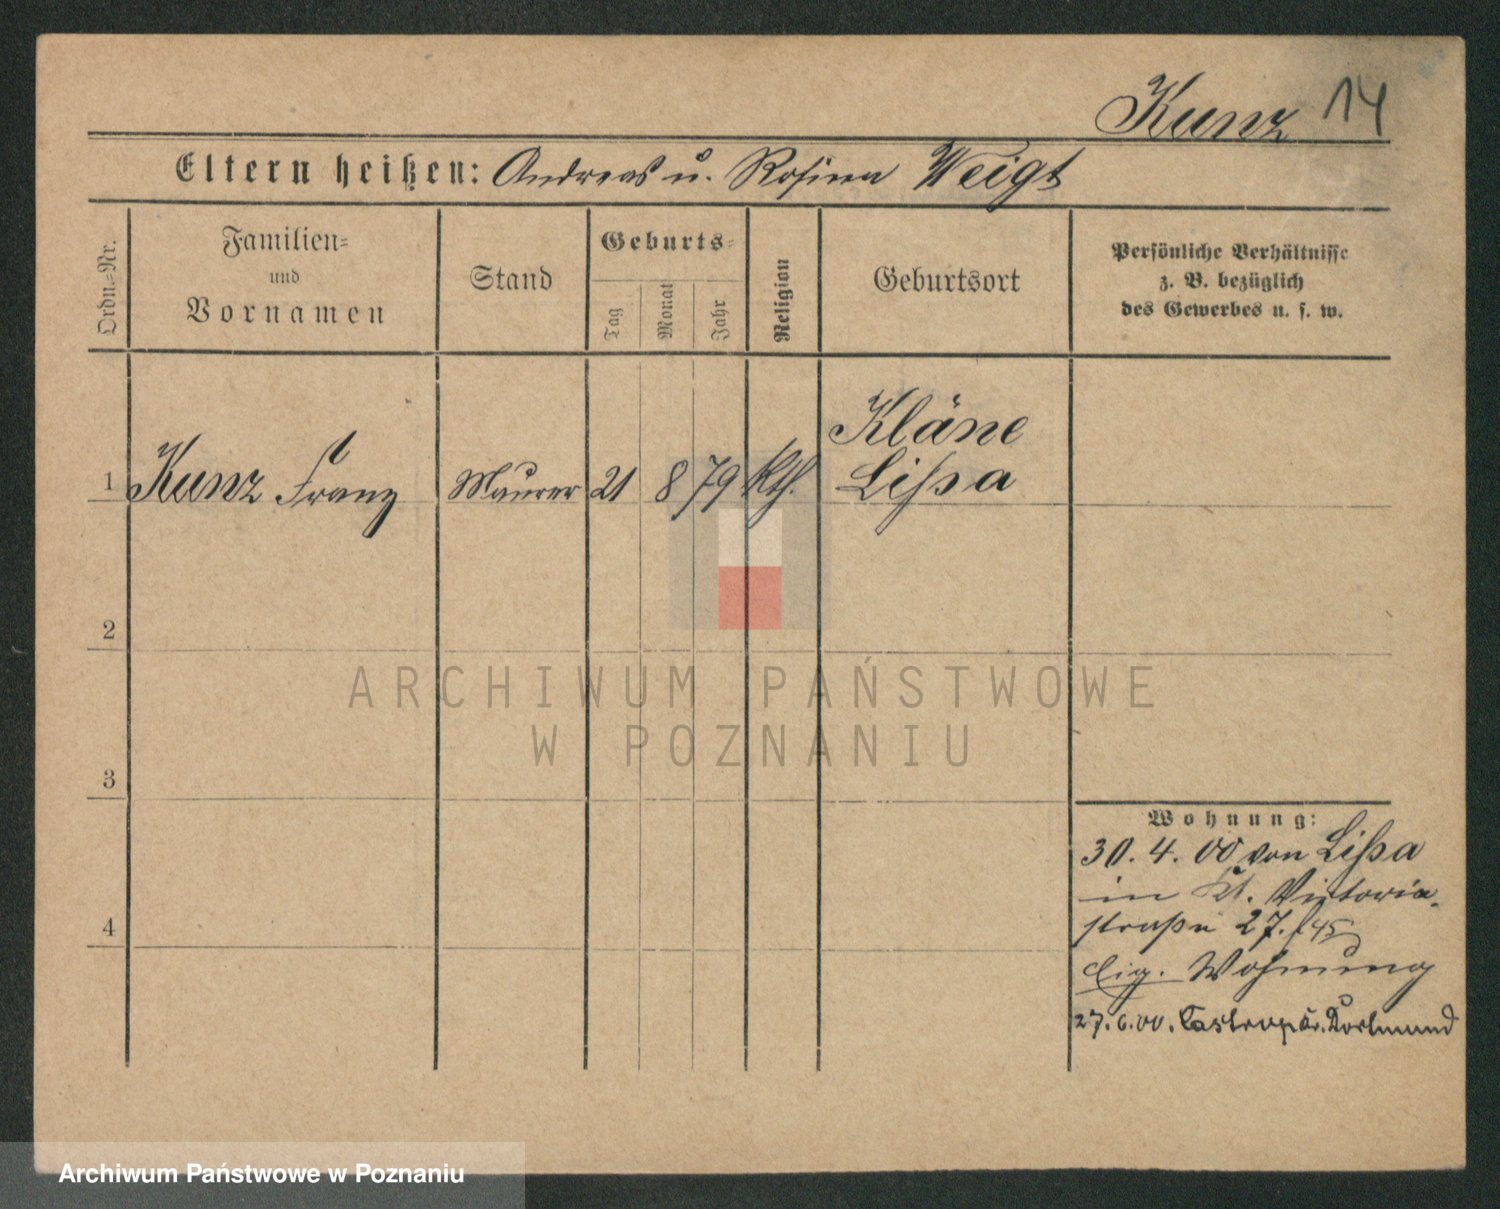 Kunz 14
Eltern heißen: Andreas u. Rosina Weigt
Ordn.-Nr.
Familien-
und
Vornamen
Stand
Geburts-
Tag
Monat
Jahr
Religion
Geburtsort
Persönliche Verhältnisse
z. B. bezüglich
des Gewerbes u. s. w.
Kläne
1 Kunz Franz Maurer 21 8 79 Kth. Lissa
2
ARCHIWUM PAŃSTWOWE
W POZNANIU
3
Wohnung:
30. 4. 00 von Lissa
in Viktoria-
straße 27.
4
Eig. Wohnung
27. 6. 00. Castrop Kr. Dortmund
Archiwum Państwowe w Poznaniu